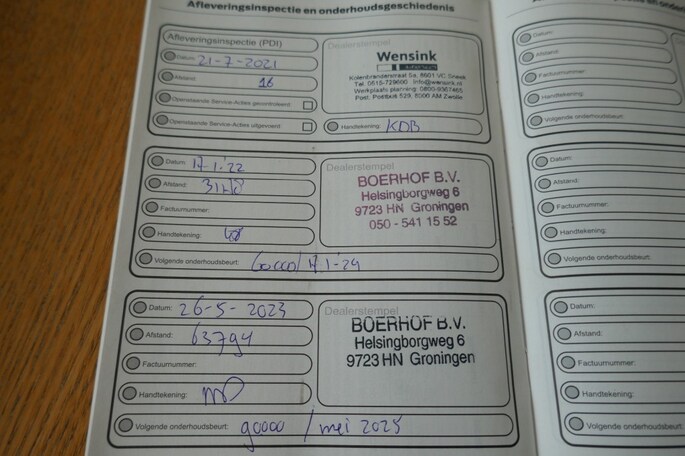 Afleveringsinspectie en onderhoudsgeschiedenis
Afleveringsinspectie (PDI)
Datum: 21-7-2021
Afstand: 18
Openstaande Service-Acties gecontroleerd:
Openstaande Service-Acties uitgevoerd:
Dealerstempel
Wensink
Kolenbranderstraat 5a, 8601 VC Sneek
Tel. 0515-729600
Werkplaats planning: 0800-9367465
Post: Postbus 529, 8000 AM Zwolle
Handtekening: KDB
Datum: 17-1-'22
Afstand:
Factuurnummer:
Handtekening:
Volgende onderhoudsbeurt: 60000/17-1-'24
Dealerstempel
BOERHOF B.V.
Helsingborgweg 6
9723 HN Groningen
050 - 541 15 52
Datum: 26-5-2023
Afstand: 63794
Factuurnummer:
Handtekening:
Volgende onderhoudsbeurt: 90000 / mei 2025
Dealerstempel
BOERHOF B.V.
Helsingborgweg 6
9723 HN Groningen
Datum:
Afstand:
Factuurnummer:
Handtekening:
Volgende onderhoudsbeurt:
Datum:
Afstand:
Factuurnummer:
Handtekening:
Volgende onderhoudsbeurt:
Datum:
Afstand:
Factuurnummer:
Handtekening:
Volgende onderhoudsbeurt: